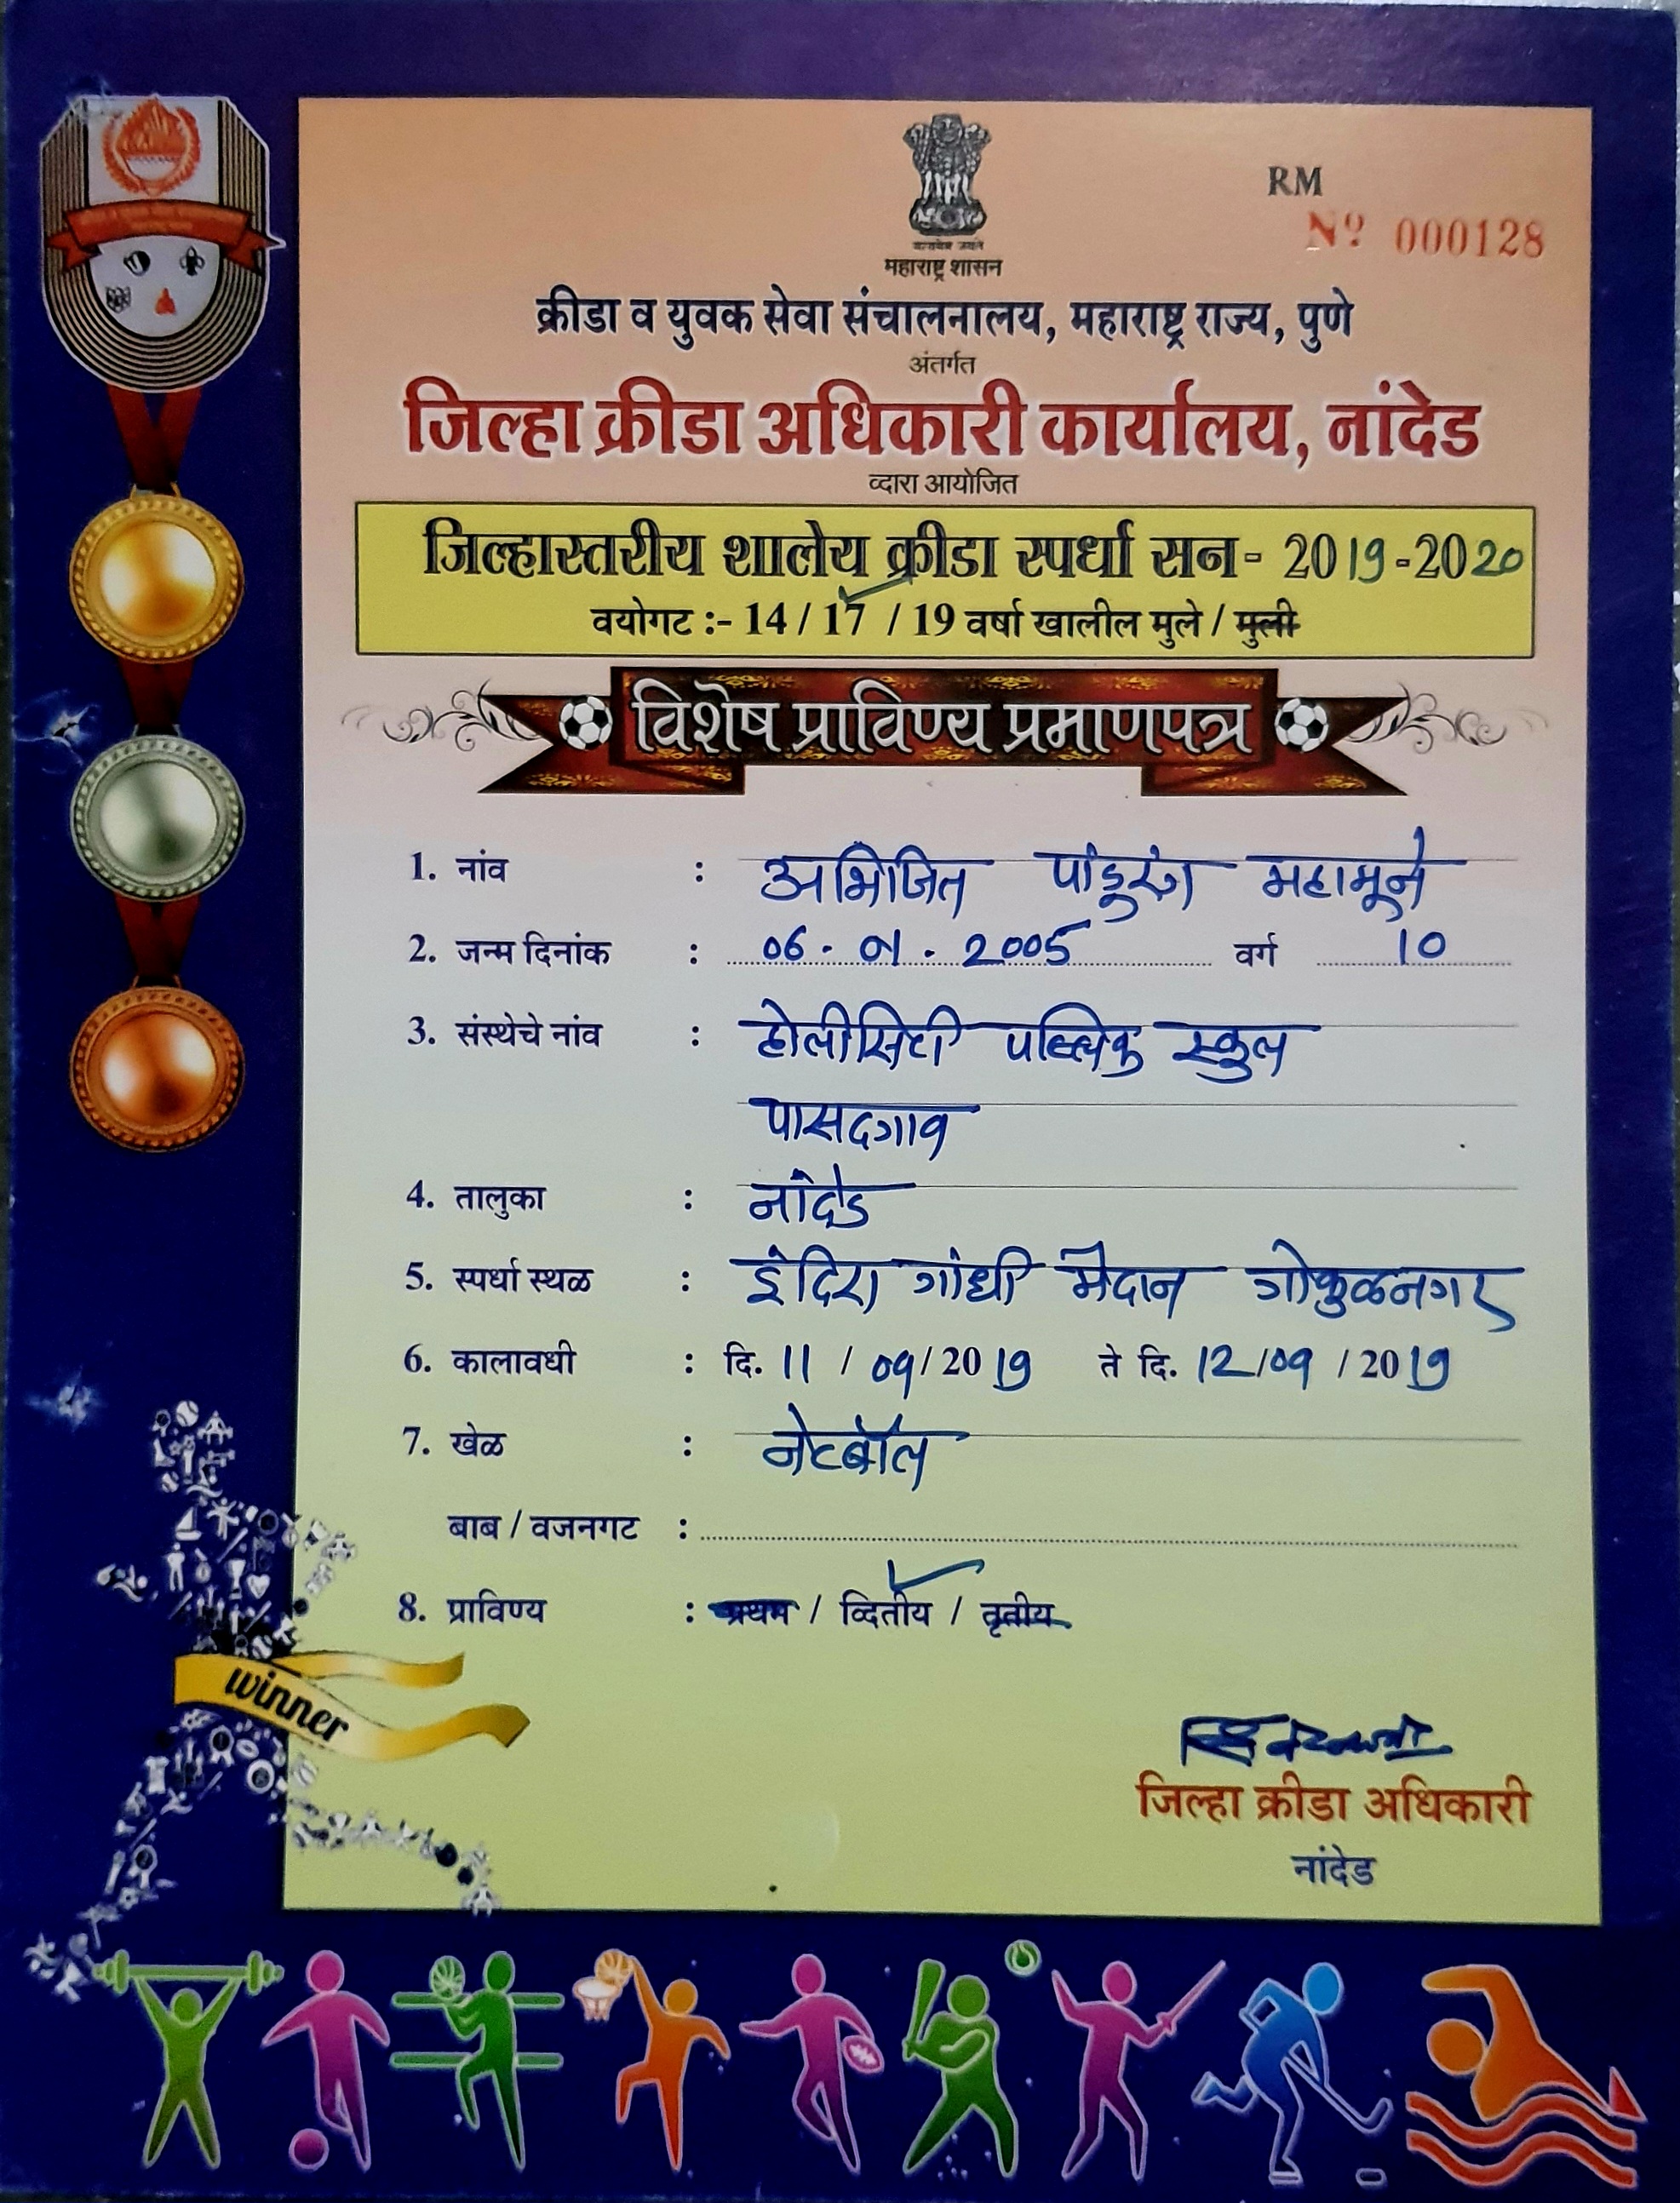 RM
Nº 000128
महाराष्ट्र शासन
क्रीडा व युवक सेवा संचालनालय, महाराष्ट्र राज्य, पुणे
अंतर्गत
जिल्हा क्रीडा अधिकारी कार्यालय, नांदेड
व्दारा आयोजित
जिल्हास्तरीय शालेय क्रीडा स्पर्धा सन- 2019-2020
वयोगट :- 14 / 17 / 19 वर्षा खालील मुले / मुली
विशेष प्राविण्य प्रमाणपत्र
1. नांव : अभिजित पांडुरंग महामूने
2. जन्म दिनांक : 06.01.2005 वर्ग 10
3. संस्थेचे नांव : होलीसिटी पब्लिक स्कुल
पासदगाव
4. तालुका : नांदेड
5. स्पर्धा स्थळ : इंदिरा गांधी मैदान गोकुळनगर
6. कालावधी : दि. 11 / 09 / 2019 ते दि. 12/09 / 2019
7. खेळ : नेटबॉल
बाब / वजनगट :
8. प्राविण्य : प्रथम / व्दितीय / तृतीय
winner
जिल्हा क्रीडा अधिकारी
नांदेड